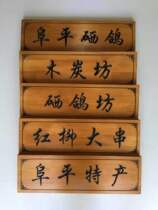 阜平硒鸽
木炭坊
硒鸽坊
红柳大串
阜平特产